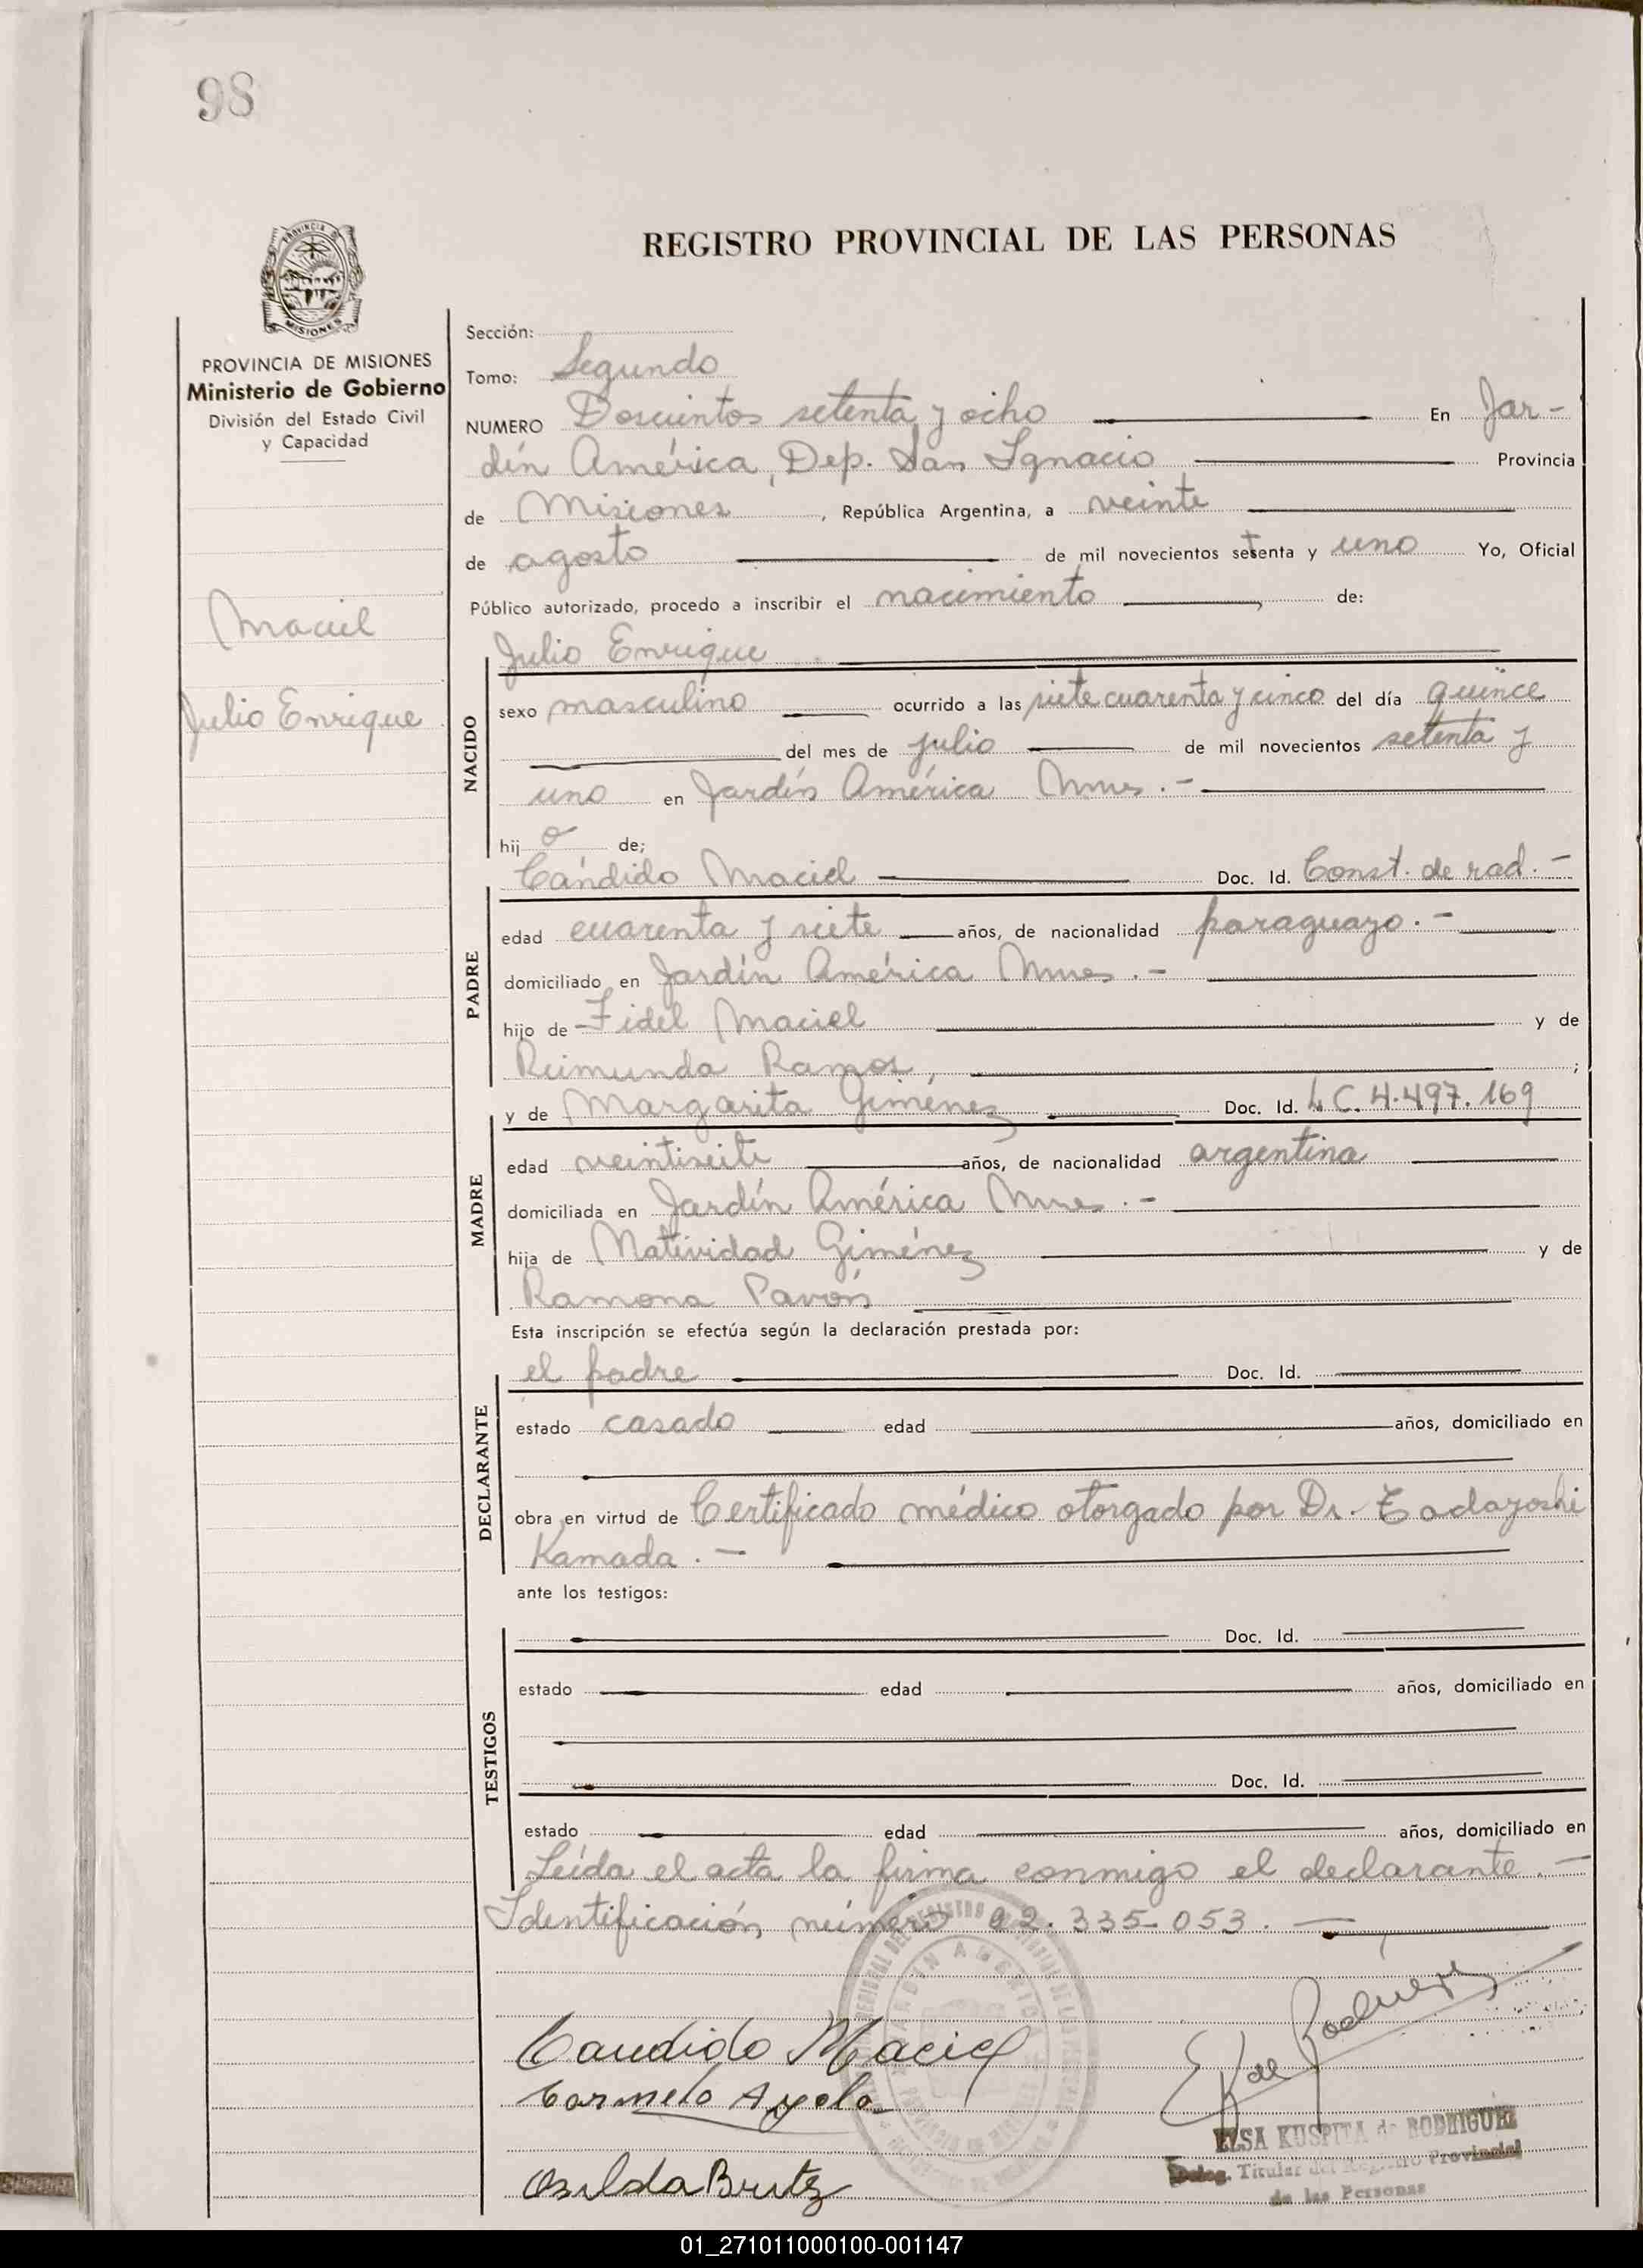 98
REGISTRO PROVINCIAL DE LAS PERSONAS
PROVINCIA DE MISIONES
Ministerio de Gobierno
División del Estado Civil
y Capacidad
Maciel
Julio Enrique
Sección:
Tomo: Segundo
NUMERO Doscientos setenta y ocho En Jar-
dín América, Dep. San Ignacio Provincia
de Misiones, República Argentina, a veinte
de agosto de mil novecientos setenta y uno Yo, Oficial
Público autorizado, procedo a inscribir el nacimiento, de:
Julio Enrique
NACIDO
sexo masculino ocurrido a las siete cuarenta y cinco del día quince
del mes de julio de mil novecientos setenta y
uno en Jardín América Mnes.-
hijo de;
Cándido Maciel Doc. Id. Const. de rad.-
PADRE
edad cuarenta y siete años, de nacionalidad paraguayo.-
domiciliado en Jardín América Mnes.-
hijo de Fidel Maciel y de
Reimunda Ramos, ;
y de Margarita Giménez Doc. Id. L.C. 4.497.169
MADRE
edad veintisiete años, de nacionalidad argentina
domiciliada en Jardín América Mnes.-
hija de Natividad Giménez y de
Ramona Pavón
Esta inscripción se efectúa según la declaración prestada por:
el padre Doc. Id.
DECLARANTE
estado casado edad años, domiciliado en
obra en virtud de Certificado médico otorgado por Dr. Tadayoshi
Kamada.-
ante los testigos:
Doc. Id.
TESTIGOS
estado edad años, domiciliado en
Doc. Id.
estado edad años, domiciliado en
Leída el acta la firma conmigo el declarante.-
Identificación número 92.335.053.-
Candido Maciel
Carmelo Ayala
E K de Rodríguez
ELSA KUSPITA de RODRIGUEZ
Deleg. Titular del Registro Provincial
de las Personas
Osilda Britz
01_271011000100-001147